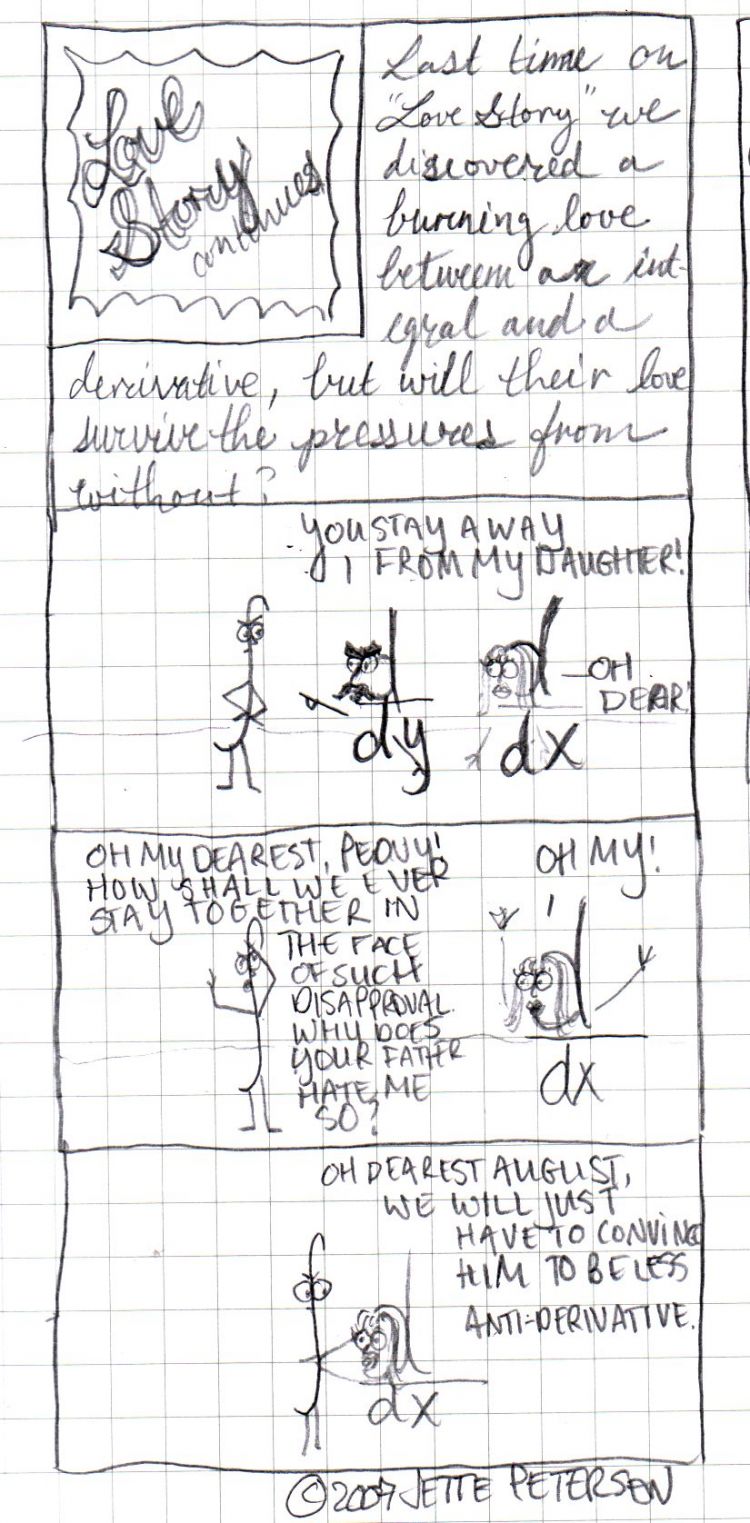 Love
Story
continues
Last time on
"Love Story" we
discovered a
burning love
between an int-
egral and a
derivative, but will their love
survive the pressures from
without?
YOU STAY AWAY
FROM MY DAUGHTER!
d
dy
d
dx
OH
DEAR!
OH MY DEAREST, PEONY!
HOW SHALL WE EVER
STAY TOGETHER IN
THE FACE
OF SUCH
DISAPPROVAL.
WHY DOES
YOUR FATHER
HATE ME
SO?
OH MY!
d
dx
OH DEAREST AUGUST,
WE WILL JUST
HAVE TO CONVINCE
HIM TO BE LESS
ANTI-DERIVATIVE.
d
dx
©2009 JETTE PETERSEN